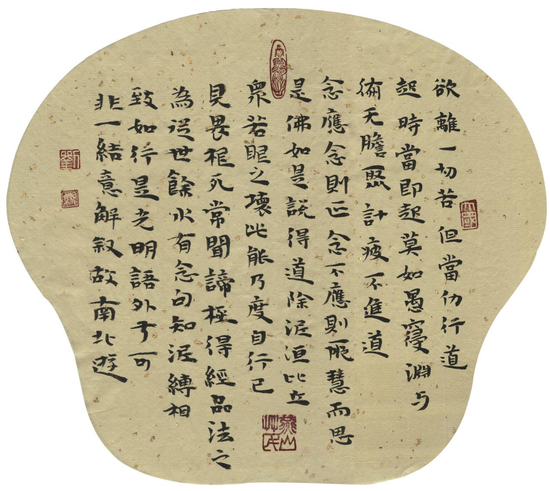 欲離一切苦但當仂行道
起時當即起莫如愚寝淵与
无瞻計疲不進道
念應念則正念不應則慧而思
是佛如是說得道除泥洹比丘
衆若眼之壞此能乃度自行已
見畏死常聞諦極得經品法之
為從世餘水有念句知泥縛相
致如行是光明語外于可
非一結意解叙故南北遊